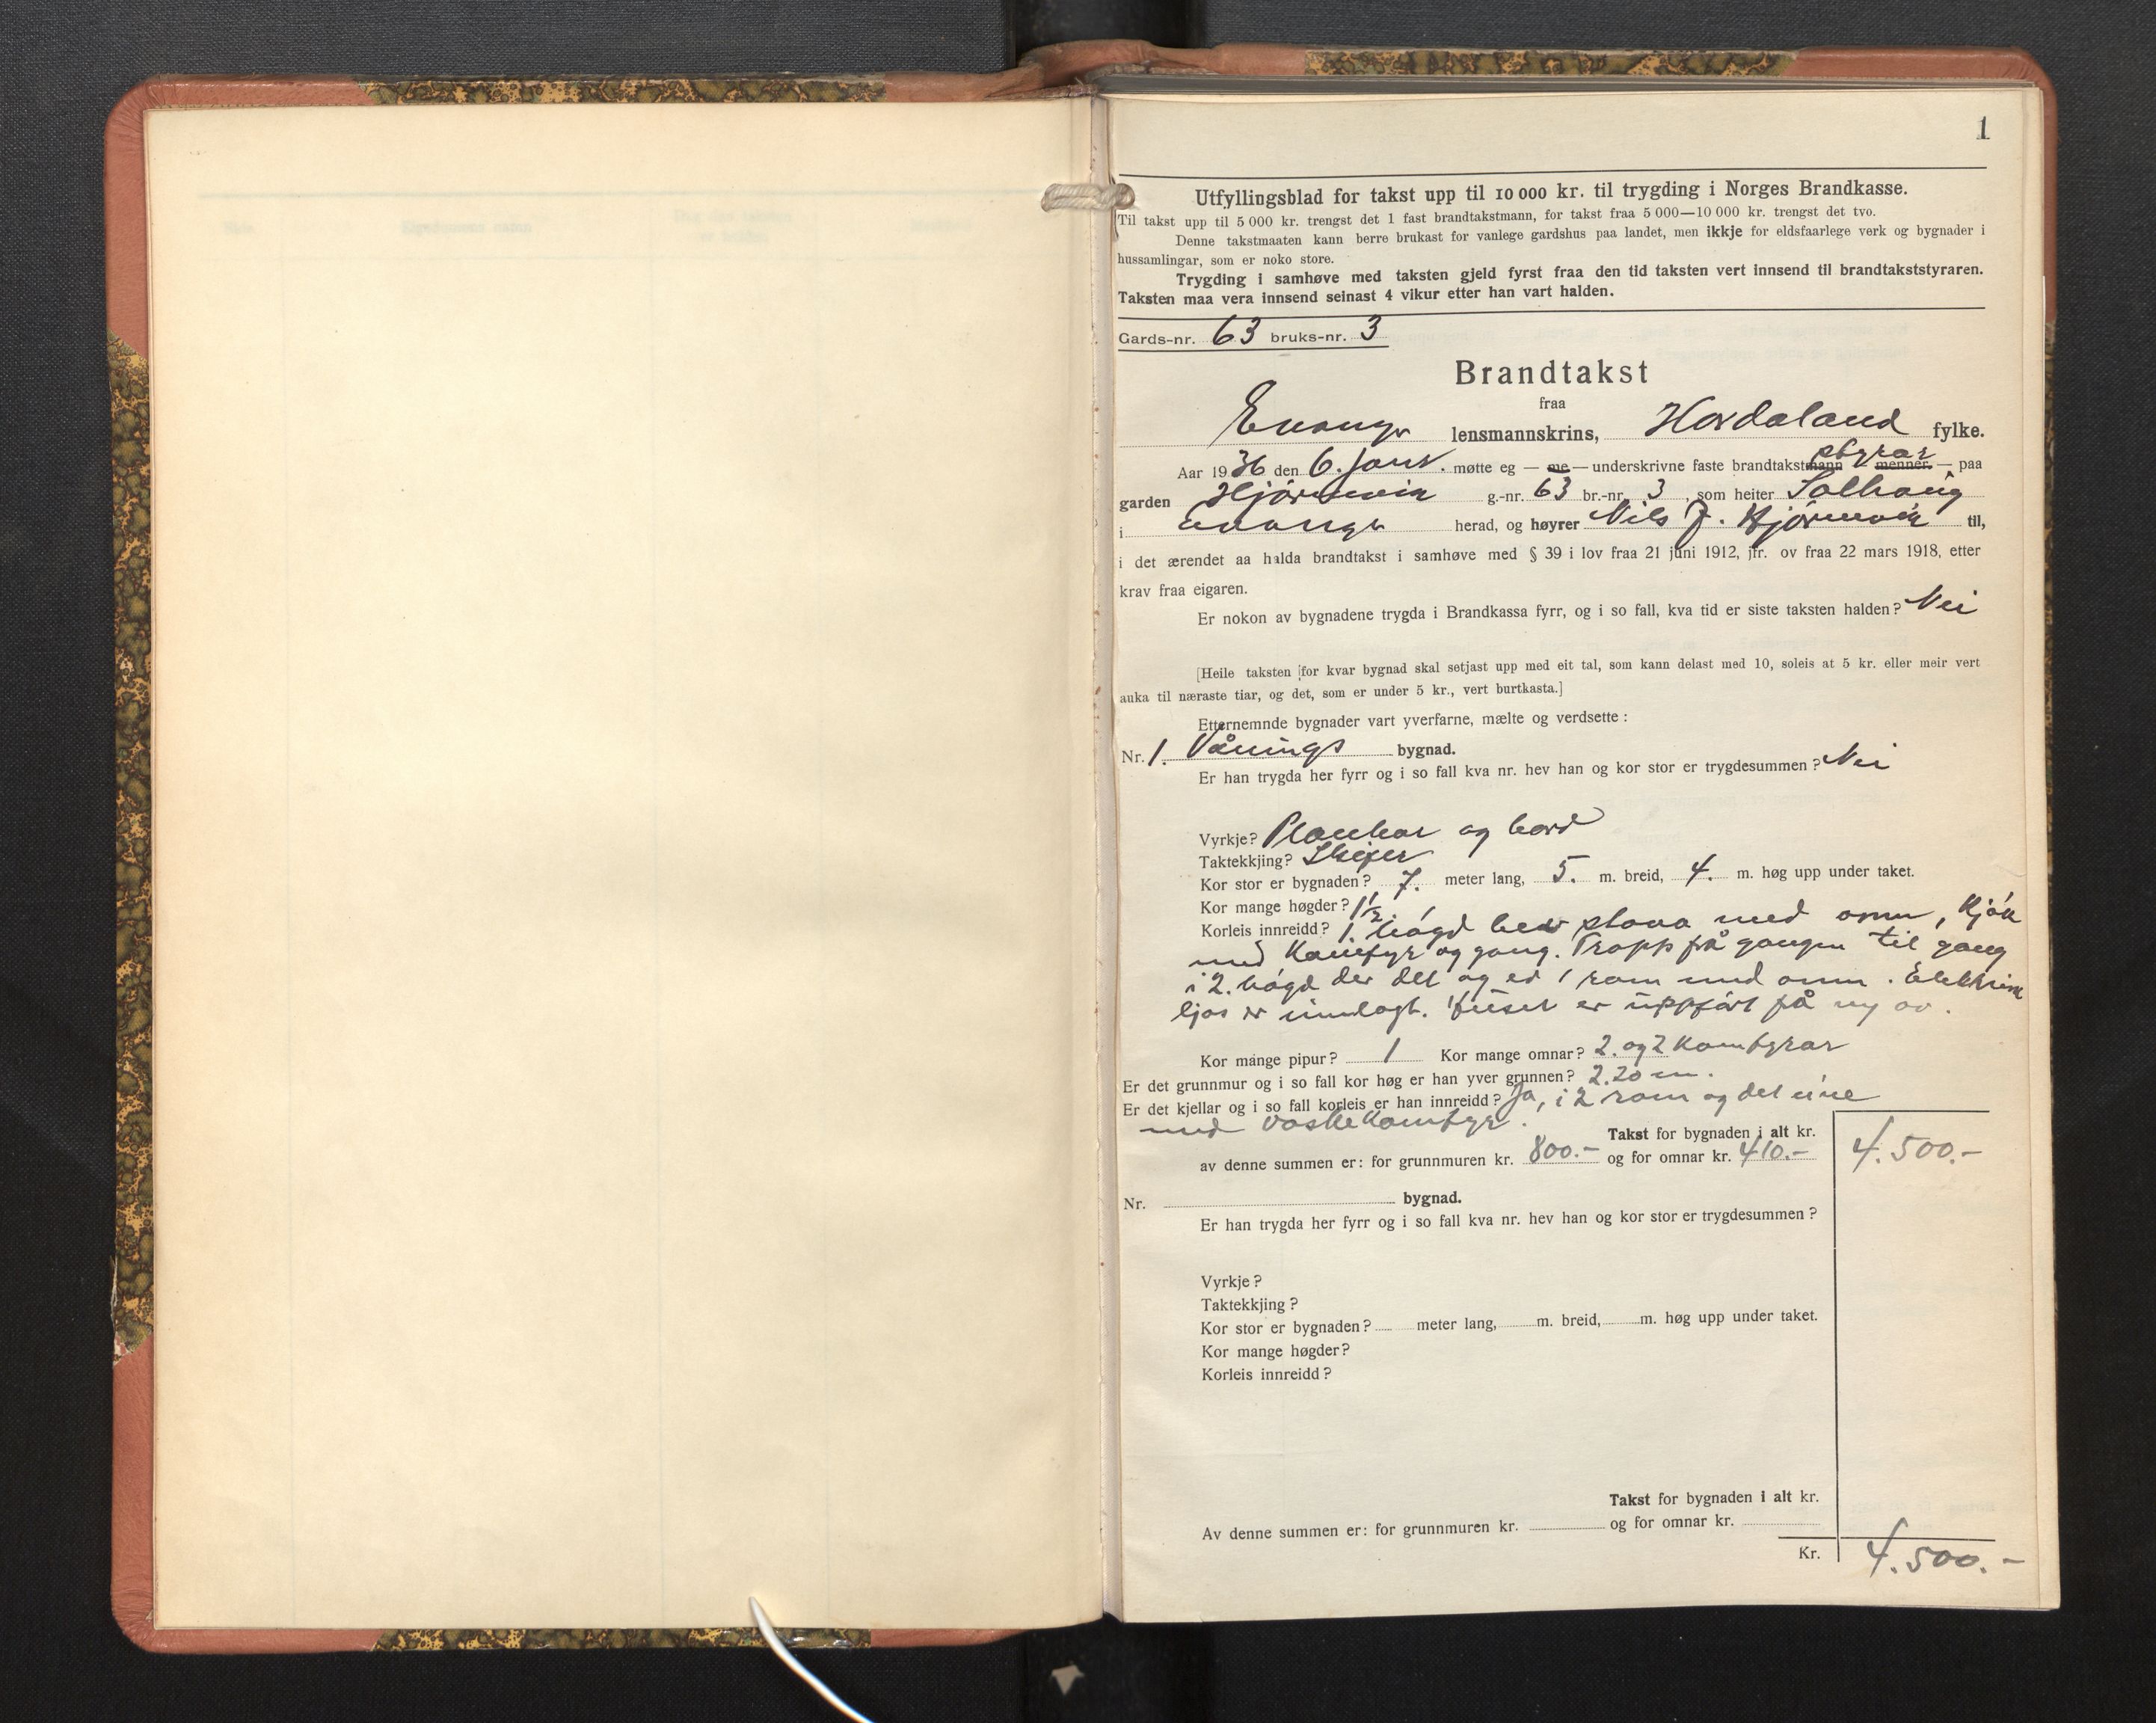 1
Utfyllingsblad for takst upp til 10 000 kr. til trygding i Norges Brandkasse.
Til takst upp til 5 000 kr. trengst det 1 fast brandtakstmann, for takst fraa 5 000—10 000 kr. trengst det tvo.
Denne takstmaaten kann berre brukast for vanlege gardshus paa landet, men ikkje for eldsfaarlege verk og bygnader i
hussamlingar, som er noko store.
Trygding i samhøve med taksten gjeld fyrst fraa den tid taksten vert innsend til brandtakststyraren.
Taksten maa vera innsend seinast 4 vikur etter han vart halden.
Gards-nr. 63 bruks-nr. 3
Brandtakst
fraa
Evanger lensmannskrins, Hordaland fylke.
styrar
Aar 1936 den 6. Janr. møtte eg — me — underskrivne faste brandtakstmann menner. — paa
garden Hjörnevik g.-nr. 63 br.-nr. 3, som heiter Solhaug
i Evanger herad, og høyrer Nils J. Hjörnevik til,
i det ærendet aa halda brandtakst i samhøve med § 39 i lov fraa 21 juni 1912, jfr. ov fraa 22 mars 1918, etter
krav fraa eigaren.
Er nokon av bygnadene trygda i Brandkassa fyrr, og i so fall, kva tid er siste taksten halden? Nei
[Heile taksten for kvar bygnad skal setjast upp med eit tal, som kann delast med 10, soleis at 5 kr. eller meir vert
auka til næraste tiar, og det, som er under 5 kr., vert burtkasta.]
Etternemnde bygnader vart yverfarne, mælte og verdsette:
Nr. 1. Vånings bygnad.
Er han trygda her fyrr og i so fall kva nr. hev han og kor stor er trygdesummen? Nei
Vyrkje? Plankar og bord
Taktekkjing? Skifer
Kor stor er bygnaden? 7. meter lang, 5. m. breid, 4. m. høg upp under taket.
Kor mange høgder? 1 1/2
Korleis innreidd? 1. högd hev stova med omn, Kjök
med Komfyr og gang. Trapp på gangen til gang
i 2. högd der det og er 1 rom med omn. Elektrisk
ljos er innlagt. Huset er uppfört på ny av.
Kor mange pipur? 1 Kor mange omnar? 2. og 2 Komfyrar
Er det grunnmur og i so fall kor høg er han yver grunnen? 2.20 m.
Er det kjellar og i so fall korleis er han innreidd? Ja, i 2 rom og det eine
med vaskekomfyr.
Takst for bygnaden i alt kr. 4.500.-
av denne summen er: for grunnmuren kr. 800.- og for omnar kr. 410.-
Nr. bygnad.
Er han trygda her fyrr og i so fall kva nr. hev han og kor stor er trygdesummen?
Vyrkje?
Taktekkjing?
Kor stor er bygnaden? meter lang, m. breid, m. høg upp under taket.
Kor mange høgder?
Korleis innreidd?
Takst for bygnaden i alt kr.
Av denne summen er: for grunnmuren kr. og for omnar kr.
Kr. 4.500.-